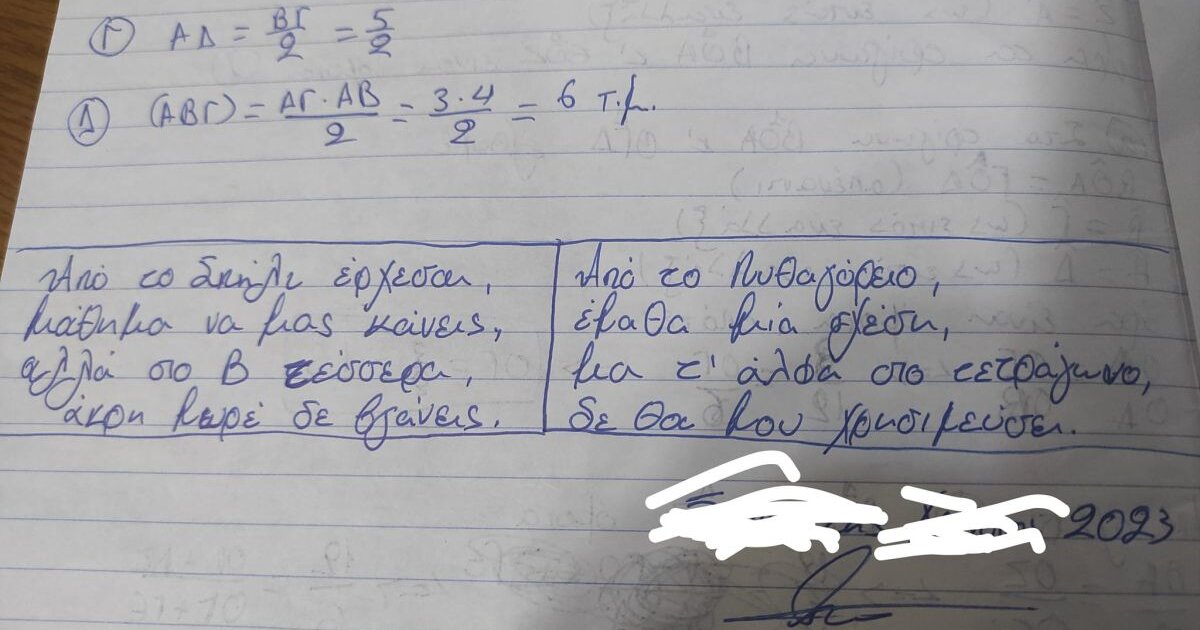 Γ ΑΔ = ΒΓ/2 = 5/2
Δ (ΑΒΓ) = ΑΓ·ΑΒ/2 = 3·4/2 = 6 τ.μ.
Από το Σπήλι έρχεσαι,
μάθημα να μας κάνεις,
αλλά στο Β τέσσερα,
άκρη μωρέ δε βγάνεις.
Από το Πυθαγόρειο,
έμαθα μία σχέση,
μα τ' άλφα στο τετράγωνο,
δε θα μου χρησιμεύσει.
2023